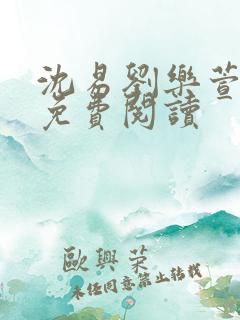 沈易劉樂萱
免費閱讀
歐興榮
未經同意禁止轉載